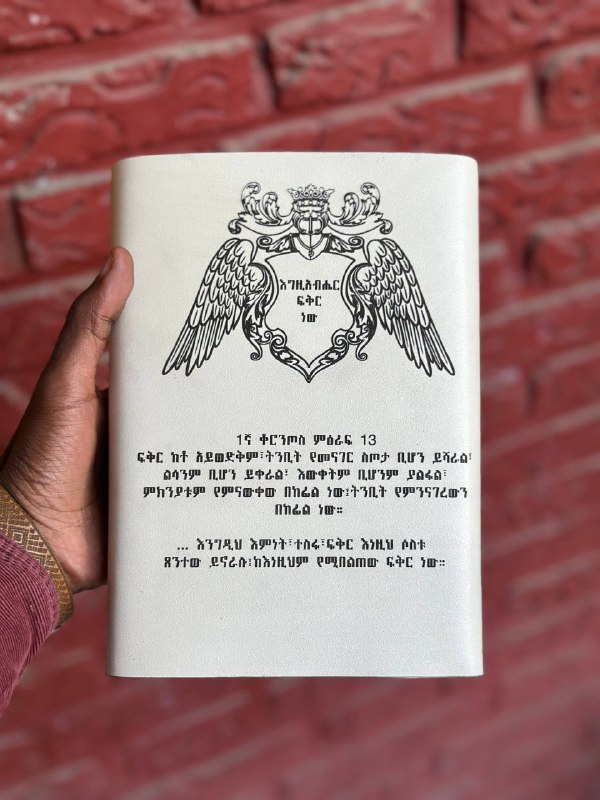 እግዚአብሔር
ፍቅር
ነው
1ኛ ቆሮንጦስ ምዕራፍ 13
ፍቅር ከቶ አይወድቅም፤ትንቢት የመናገር ስጦታ ቢሆን ይሻራል፤
ልሳንም ቢሆን ይቀራል፤ እውቀትም ቢሆንም ያልፋል፤
ምክንያቱም የምናውቀው በከፊል ነው፤ትንቢት የምንናገረውን
በከፊል ነው።
... እንግዲህ እምነት፣ተስፋ፣ፍቅር እነዚህ ሶስቱ
ጸንተው ይኖራሉ፤ከእነዚህም የሚበልጠው ፍቅር ነው።